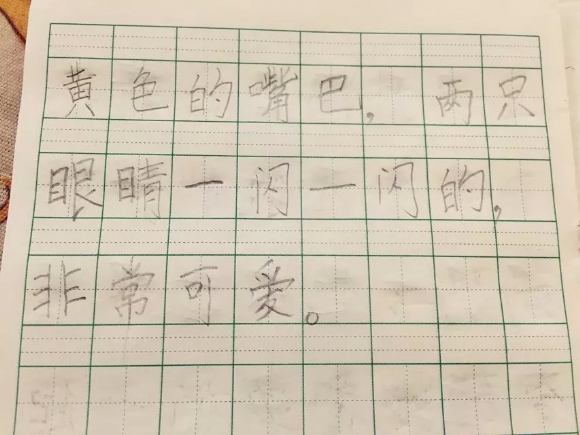 黄色的嘴巴，两只
眼睛一闪一闪的，
非常可爱。